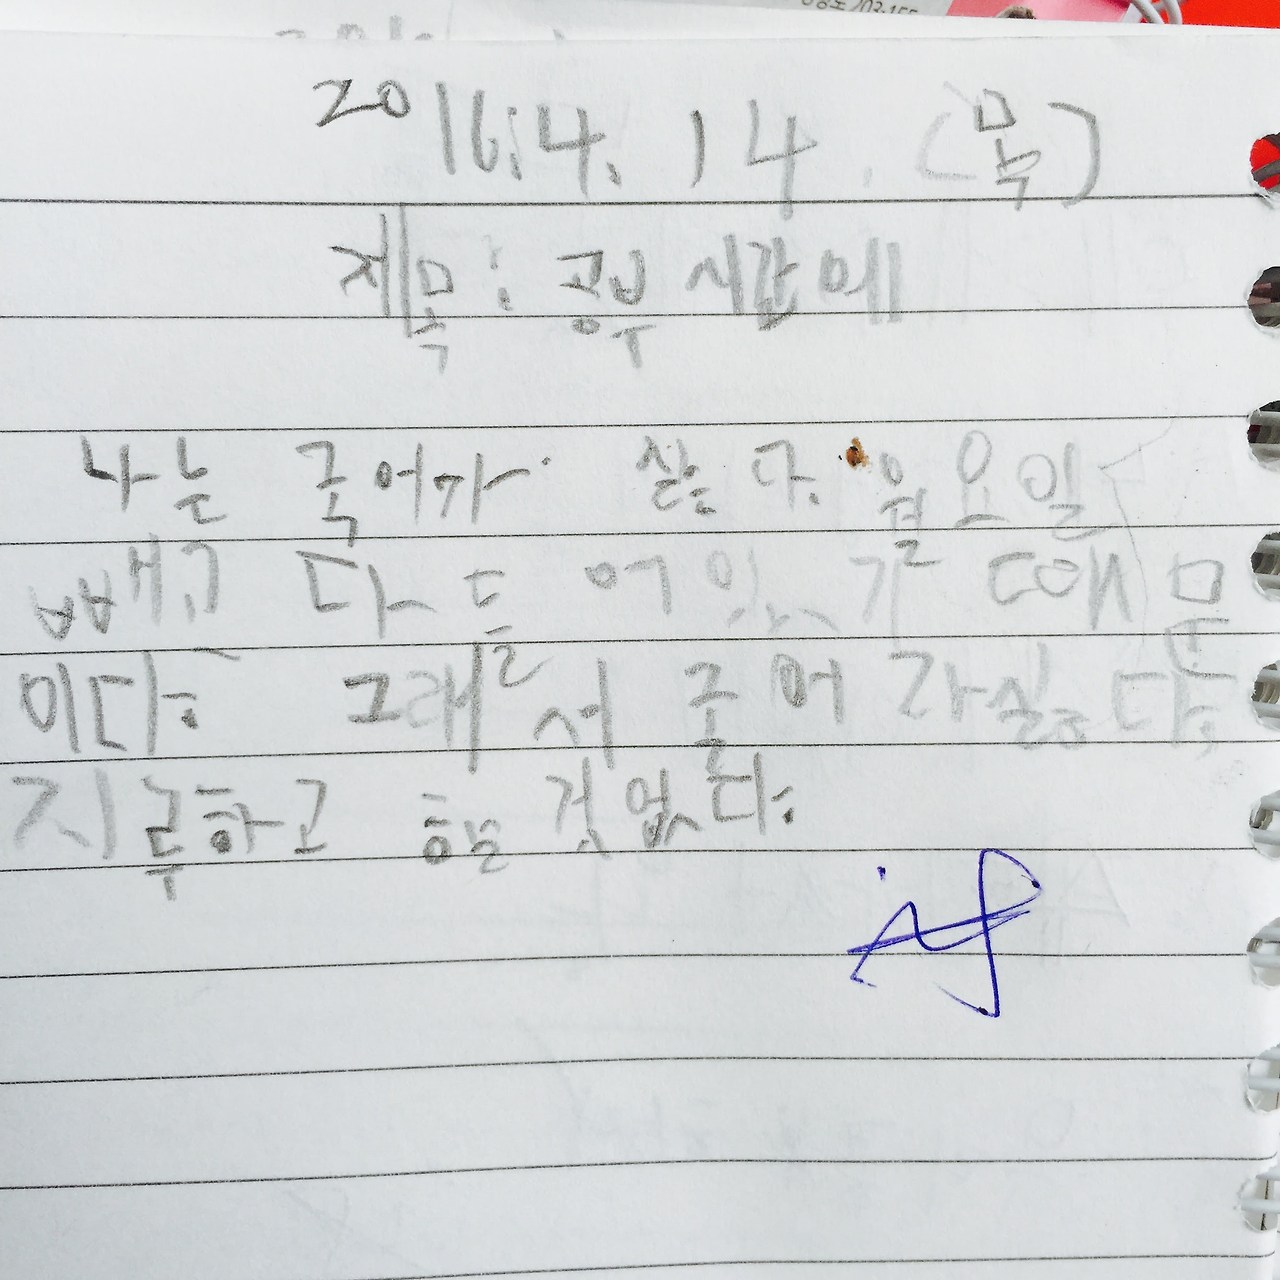 2016.4.14.(목)
제목: 공부 시간에
나는 국어가 싫다. 월요일
빼고 다 들어있기 때문
이다. 그래서 국어가싫다.
지루하고 힘든 것 없다.